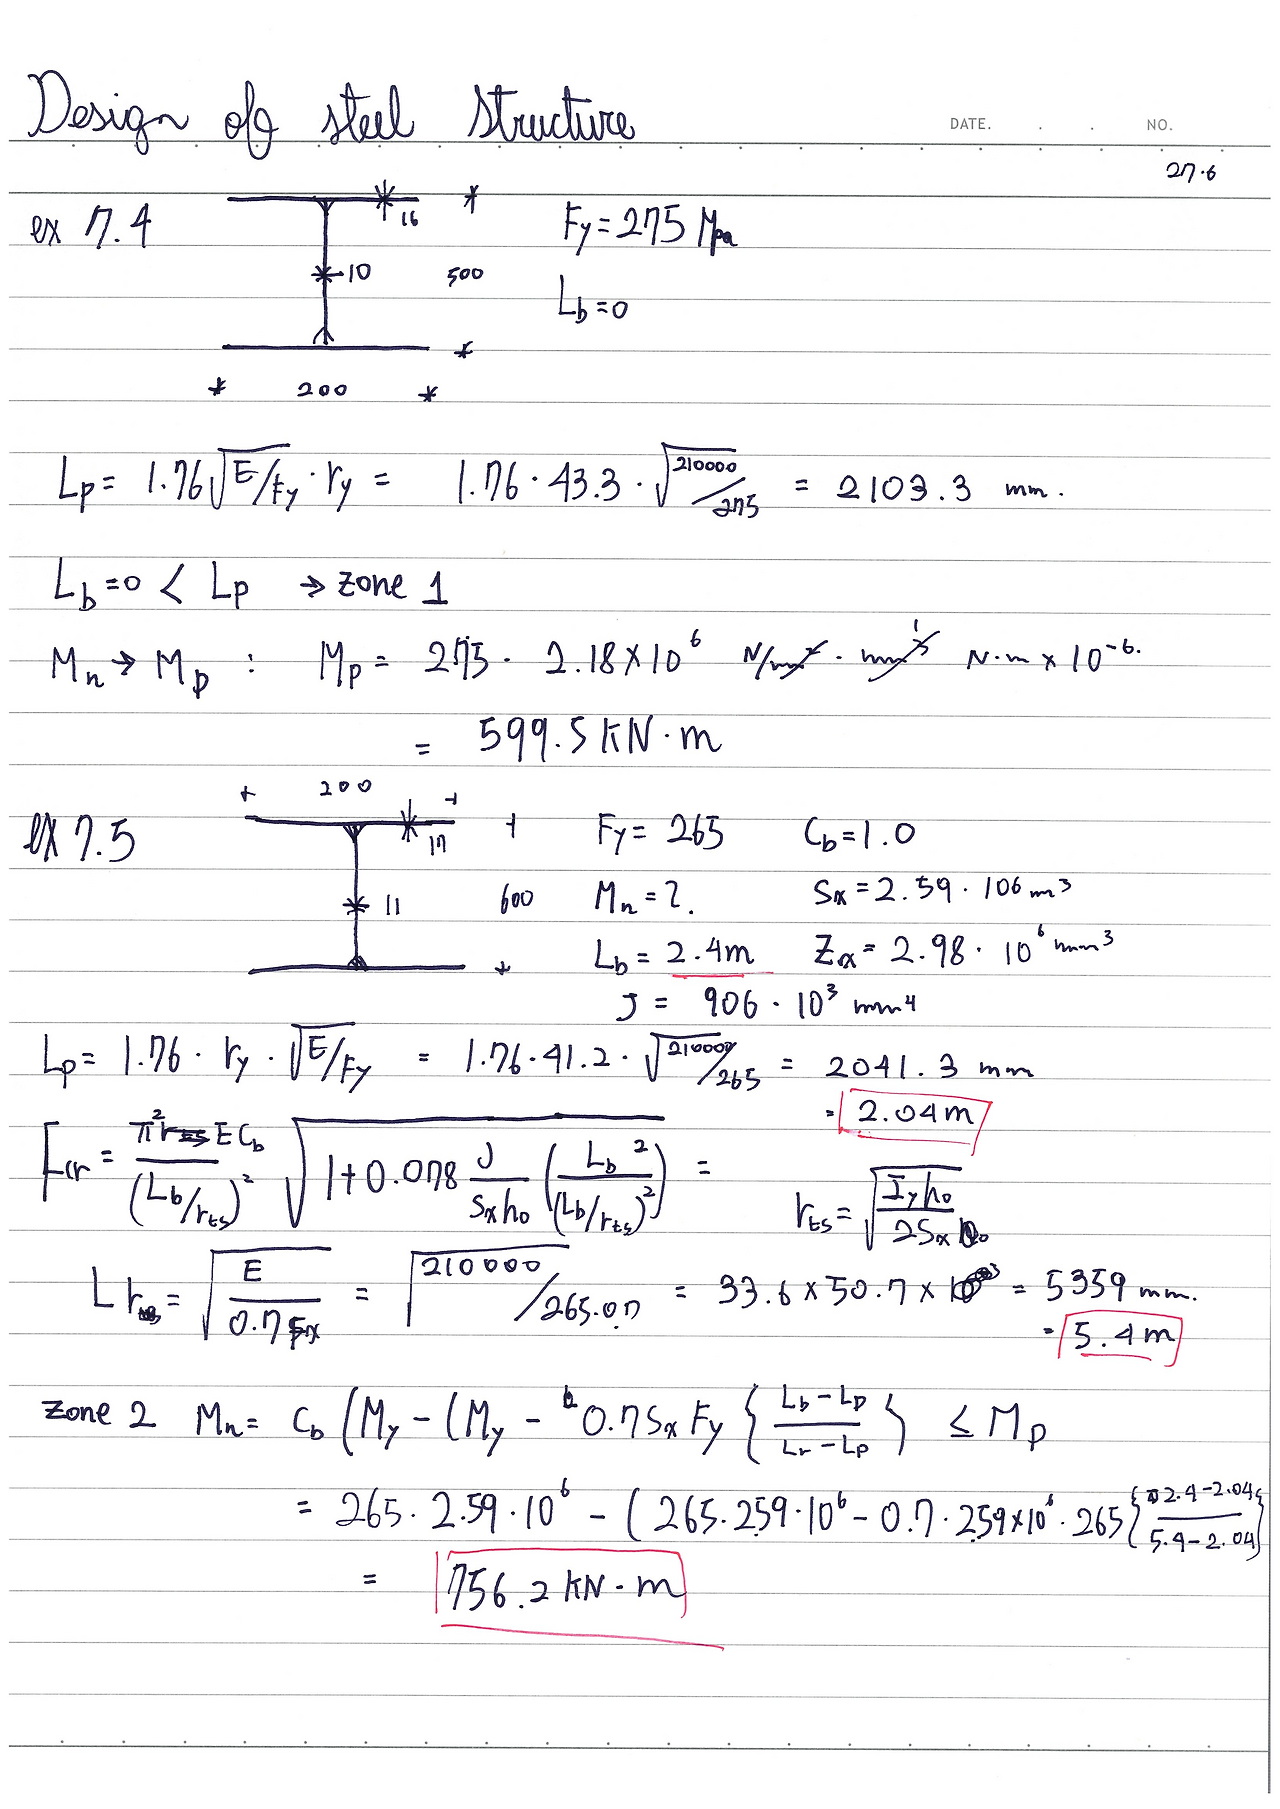 Design of steel structure
DATE. . . NO.
27.6
ex 7.4
16
10
500
200
Fy = 275 Mpa
Lb = 0
Lp = 1.76 √E/Fy · ry = 1.76 · 43.3 · √210000/275 = 2103.3 mm.
Lb = 0 < Lp → zone 1
Mn → Mp : Mp = 275 · 2.18 × 10⁶ N/mm² · mm³ 1 N·m × 10⁻⁶.
= 599.5 KN·m
ex 7.5
200
17
11
600
Fy = 265 Cb = 1.0
Mn = ?. Sx = 2.59 · 106 m³
Lb = 2.4m Zx = 2.98 · 10⁶ mm³
J = 906 · 10³ mm4
Lp = 1.76 · ry · √E/Fy = 1.76 · 41.2 · √210000/265 = 2041.3 mm
= 2.04m
Fcr = π² E Cb / (Lb/rts)² √1 + 0.078 J / Sx ho (Lb ² / (Lb/rts)²) =
rts = √Iy ho / 2Sx
Lr = √E / 0.7 = √210000 / 265·0.7 = 33.6 × 50.7 × = 5359 mm.
= 5.4m
zone 2 Mn = Cb (My - (My - 0.7 Sx Fy { Lb - Lp / Lr - Lp } ≤ Mp
= 265 · 2.59 · 10⁶ - (265 · 2.59 · 10⁶ - 0.7 · 2.59 × 10⁶ · 265 { 2.4 - 2.04 / 5.4 - 2.04 }
= 756.2 KN·m